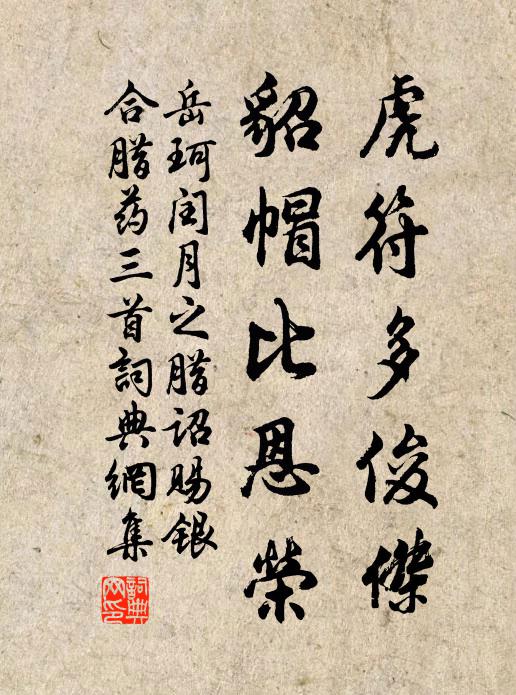 虎符多俊傑
貂帽比恩榮
岳珂闰月之腊诏赐银
合腊药三首詞典網集